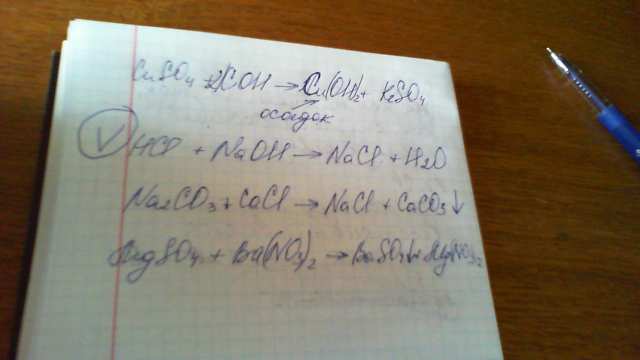 CuSO₄ + 2KOH → Cu(OH)₂ + K₂SO₄
осадок
V HCl + NaOH → NaCl + H₂O
Na₂CO₃ + CaCl → NaCl + CaCO₃ ↓
MgSO₄ + Ba(NO₃)₂ → BaSO₄↓ + Mg(NO₃)₂